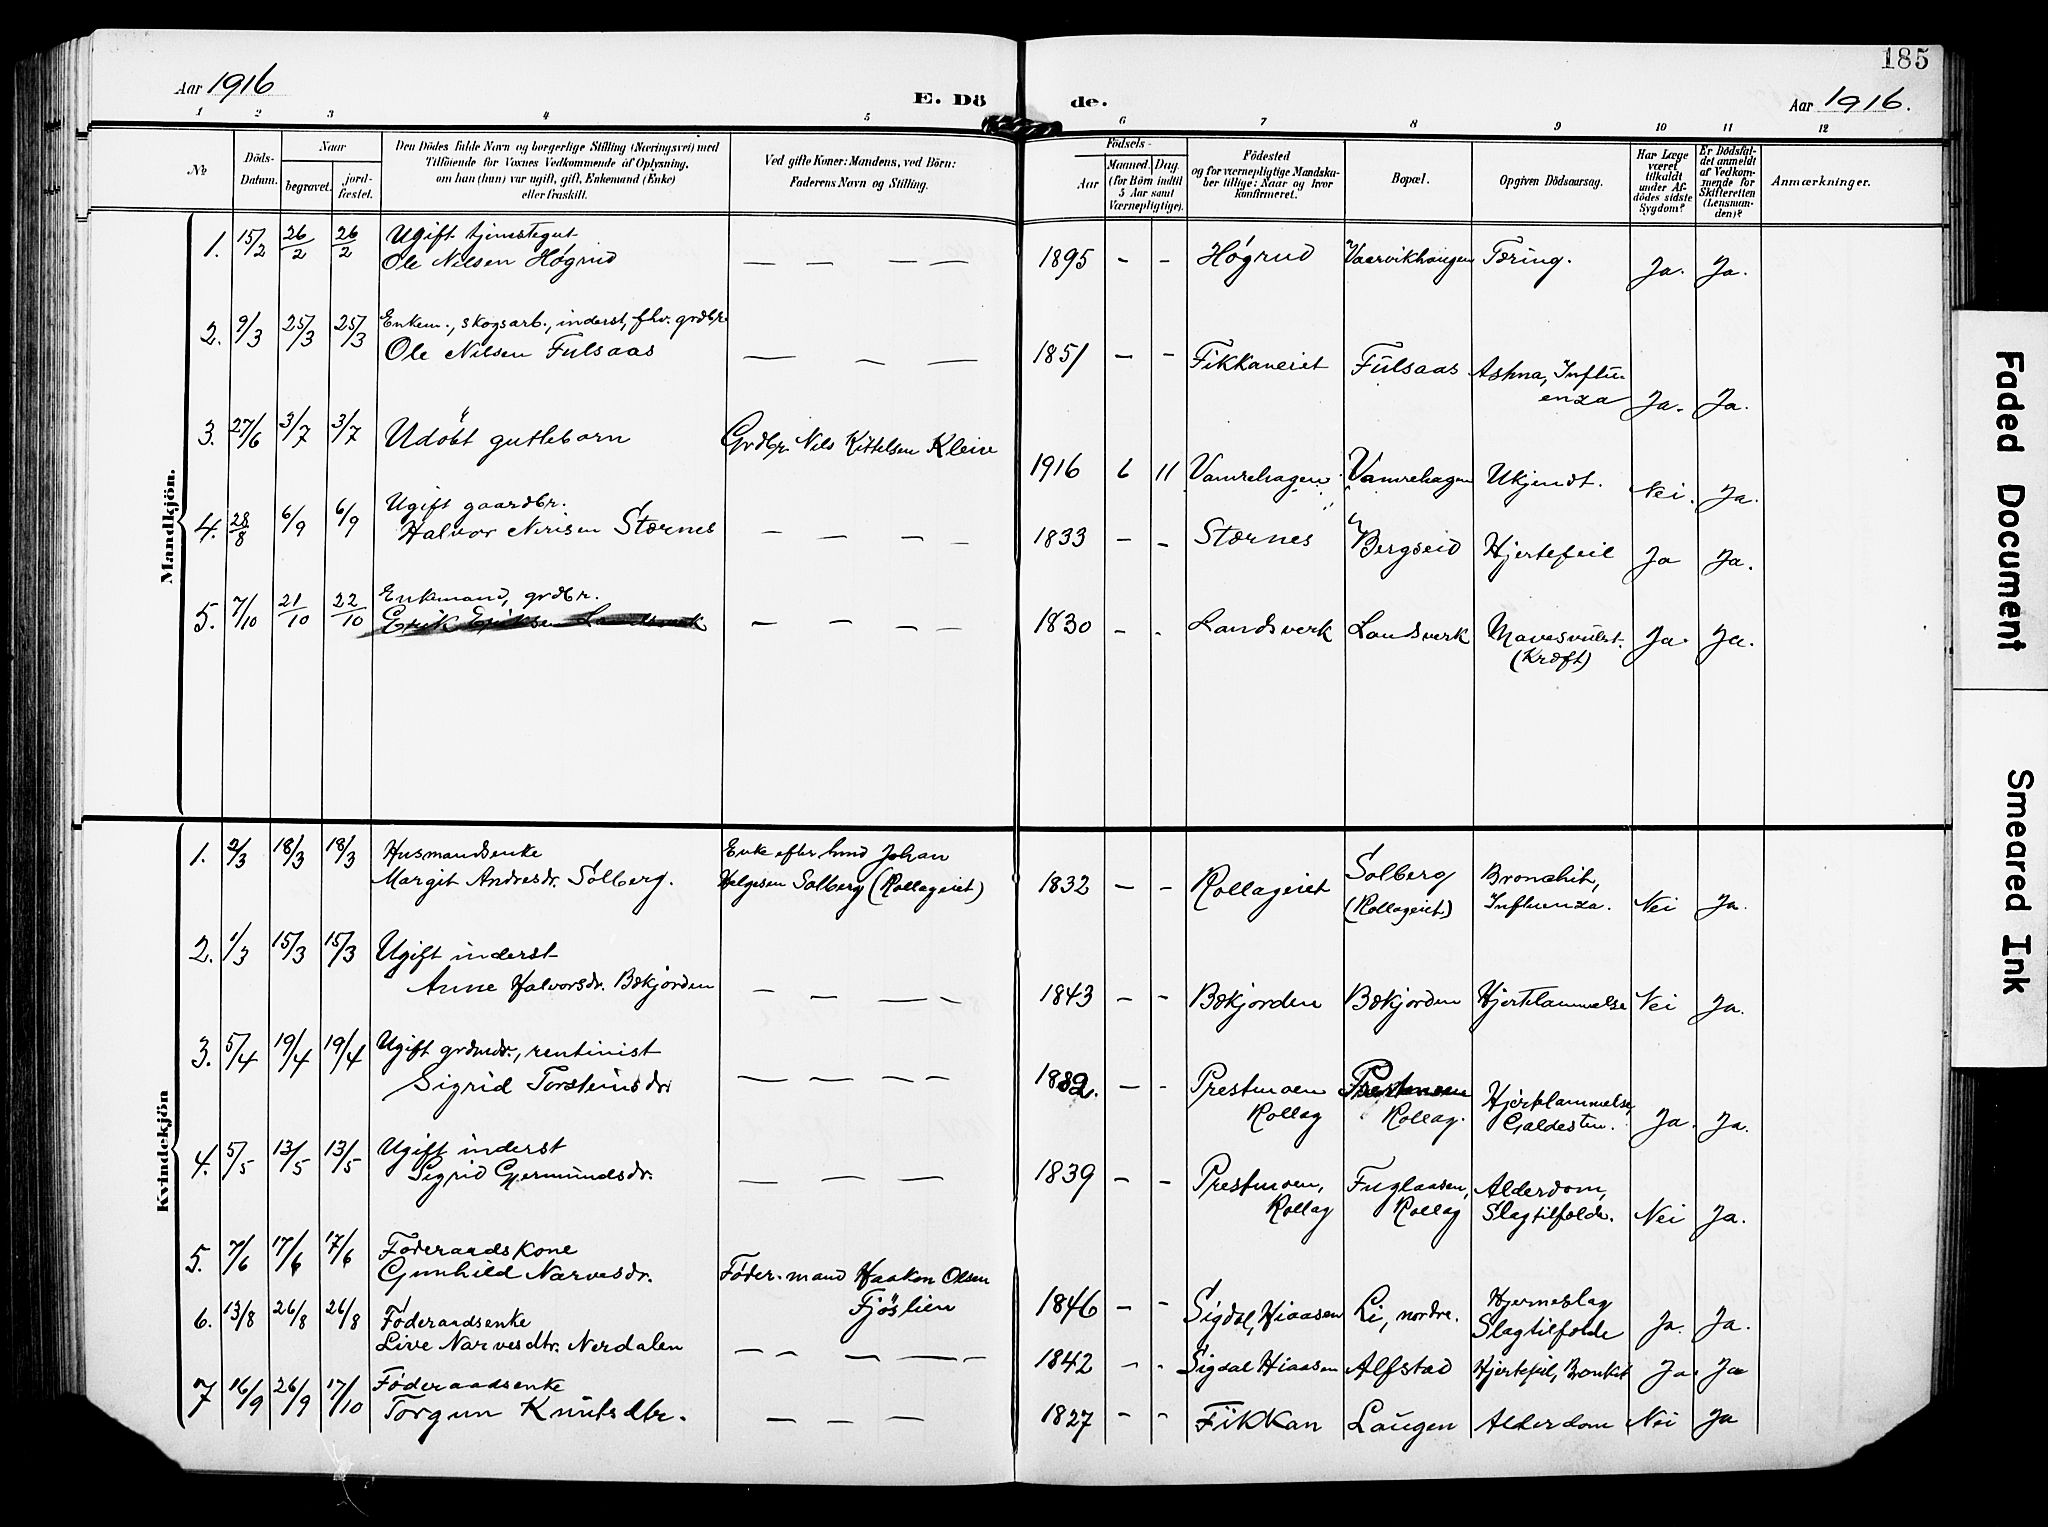 185
Aar 1916
E. Dö de.
Aar 1916.
1 2 3 4 5 6 7 8 9 10 11 12
№
Döds-Datum.
Naar
begravet.
jord-fæstet.
Den Dödes fulde Navn og borgerlige Stilling (Næringsvei) med
Tilföiende for Voxnes Vedkommende af Oplysning,
om han (hun) var ugift, gift, Enkemand (Enke)
eller fraskilt.
Ved gifte Koner: Mandens, ved Börn:
Faderens Navn og Stilling.
Födsels-
Aar
Maaned. Dag.
(for Börn indtil
5 Aar samt
Værnepligtige).
Födested
og for værnepligtige Mandska-
ber tillige: Naar og hvor
konfirmeret.
Bopæl.
Opgiven Dödsaarsag.
Har Læge
været
tilkaldt
under Af-
dödes sidste
Sygdom?
Er Dödsfal-
det anmeldt
af Vedkom-
mende for
Skifteretten
(Lensman-
den)?
Anmærkninger.
Mandkjön.
1. 15/2 26/2 26/2 Ugift tjenestegut
Ole Nilsen Høgrud — — — — 1895 - - Høgrud Vaarvikhaugen Tæring. Ja. Ja.
2. 9/3 25/3 25/3 Enkem., skogsarb., inderst, fhv. grdbr.
Ole Nilsen Fulsaas — — — 1851 - - Fikkaneiet Fulsaas Astma, Influ-
enza Ja. Ja.
3. 27/6 3/7 3/7 Udöbt guttebarn Grdbr. Nils Kittelsen Kleive 1916 6 11 Vamrehagen Vamrehagen Ukjendt. Nei. Ja.
4. 28/8 6/9 6/9 Ugift gaardbr.
Halvor Nirisen Stærnes — — — — 1833 - - Stærnes Bergseid Hjertefeil Ja Ja.
5. 7/10 21/10 22/10 Enkemand, grdbr.
Erik Eriksen Landsverk — — — — 1830 - - Landsverk Landsverk Mavesvulst.
(Kræft) Ja. Ja.
Kvindekjön
1. 2/3 18/3 18/3 Husmandsenke
Margit Andresdr. Solberg. Enke efter hmd Johan
Helgesen Solberg (Rollageiet) 1832 - - Rollageiet Solberg
(Rollageiet) Bronchit,
Influenza. Nei Ja.
2. 1/3 15/3 15/3 Ugift inderst
Anne Halvorsdr. Bækjorden — — — — 1843 - - Bækjorden Bækjorden Hjertelammelse Nei Ja.
3. 5/4 19/4 19/4 Ugift grdmdr., rentinist
Sigrid Torsteinsdr. — — — — 1882. - - Prestmoen
Rollag Prestmoen
Rollag. Hjertelammelse,
Galdesten. Ja. Ja.
4. 5/5 13/5 13/5 Ugift inderst
Sigrid Gjermundsdr. — — — 1839 - - Prestmoen,
Rollag Fuglaasen,
Rollag Alderdom,
Slagtilfolde. Nei Ja.
5. 7/6 17/6 17/6 Føderaadskone
Gunhild Narvesdr. Føder.mand Haakon Olsen
Fjöslien 1846 - - Sigdal, Hiaasen Li, nordre. Hjerneslag
Slagtilfolde Ja. Ja.
6. 13/8 26/8 26/8 Føderaadsenke
Live Narvesdtr. Nerdalen — — — — 1842 - - Sigdal Hiaasen Alfstad Hjertefeil, Bronkit Ja. Ja
7 16/9 26/9 17/10 Føderaadsenke
Torgun Knutsdtr. — — — 1827 - - Fikkan Laugen Alderdom Nei Ja
Faded Document
Smeared Ink